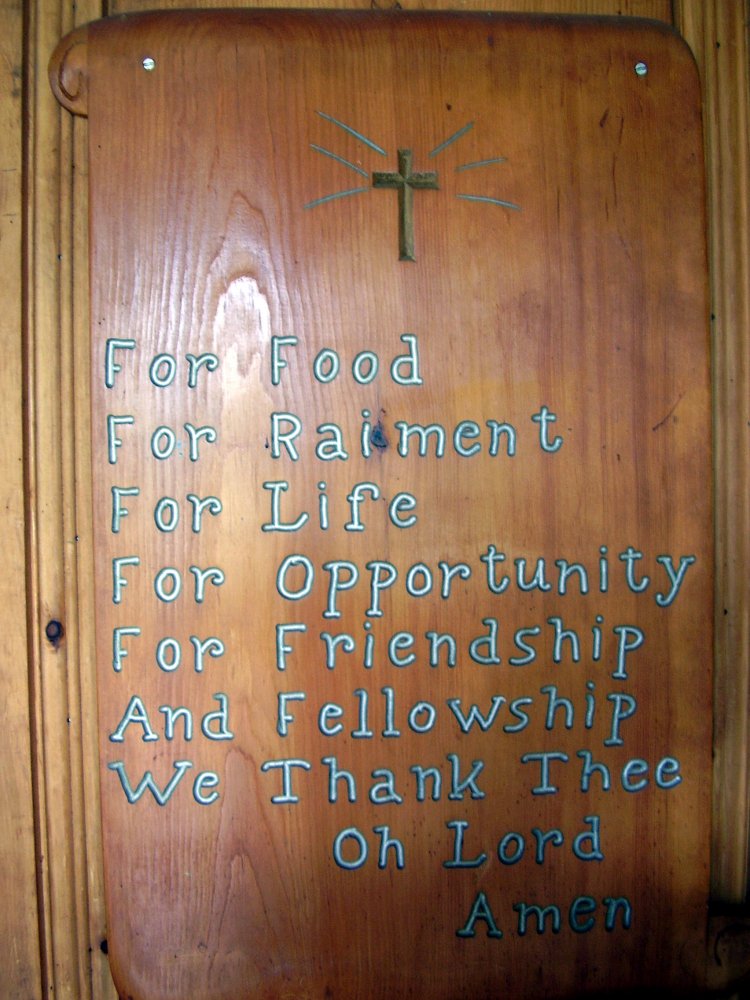 For Food
For Raiment
For Life
For Opportunity
For Friendship
And Fellowship
We Thank Thee
Oh Lord
Amen